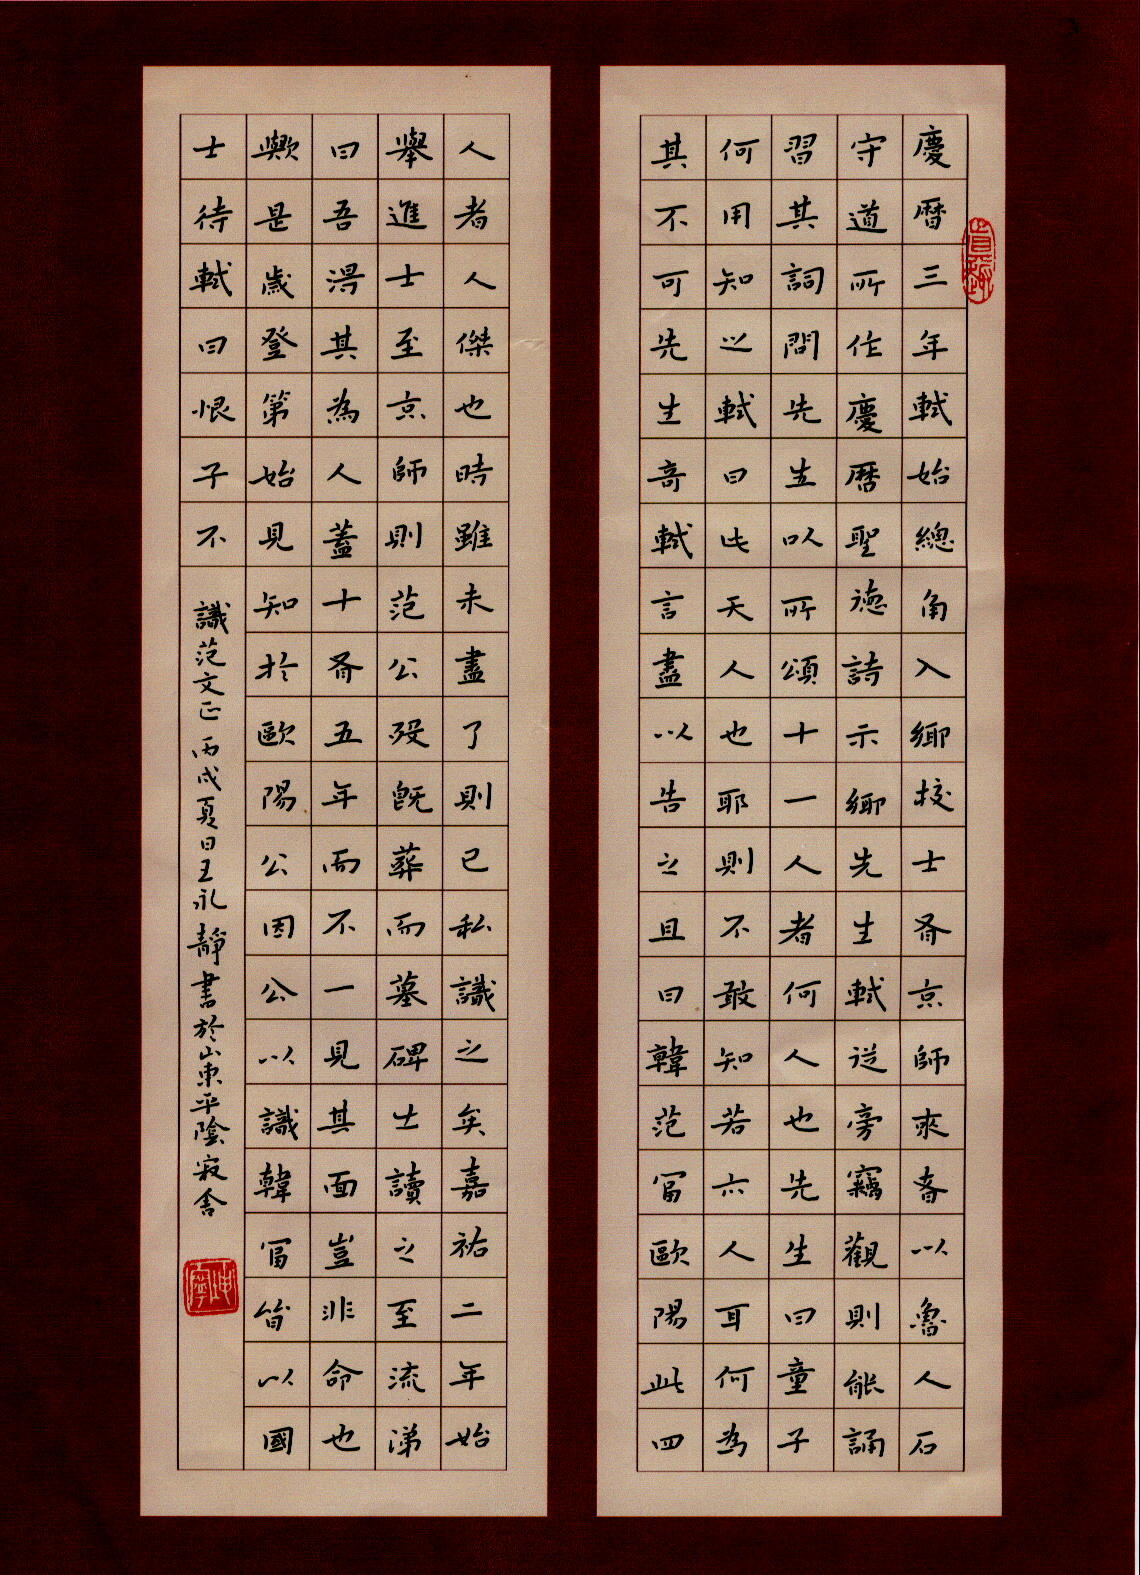 慶曆三年軾始總角入鄉校士有京師來者以魯人石
守道所作慶曆聖德詩示鄉先生軾從旁竊觀則能誦
習其詞問先生以所頌十一人者何人也先生曰童子
何用知之軾曰此天人也耶則不敢知若六人耳何為
其不可先生奇軾言盡以告之且曰韓范富歐陽此四
人者人傑也時雖未盡了則已私識之矣嘉祐二年始
舉進士至京師則范公歿既葬而墓碑士讀之至流涕
曰吾得其為人蓋十有五年而不一見其面豈非命也
歟是歲登第始見知於歐陽公因公以識韓富皆以國
士待軾曰恨子不
識范文正 丙戌夏日王永靜書於山東平陰寂舍